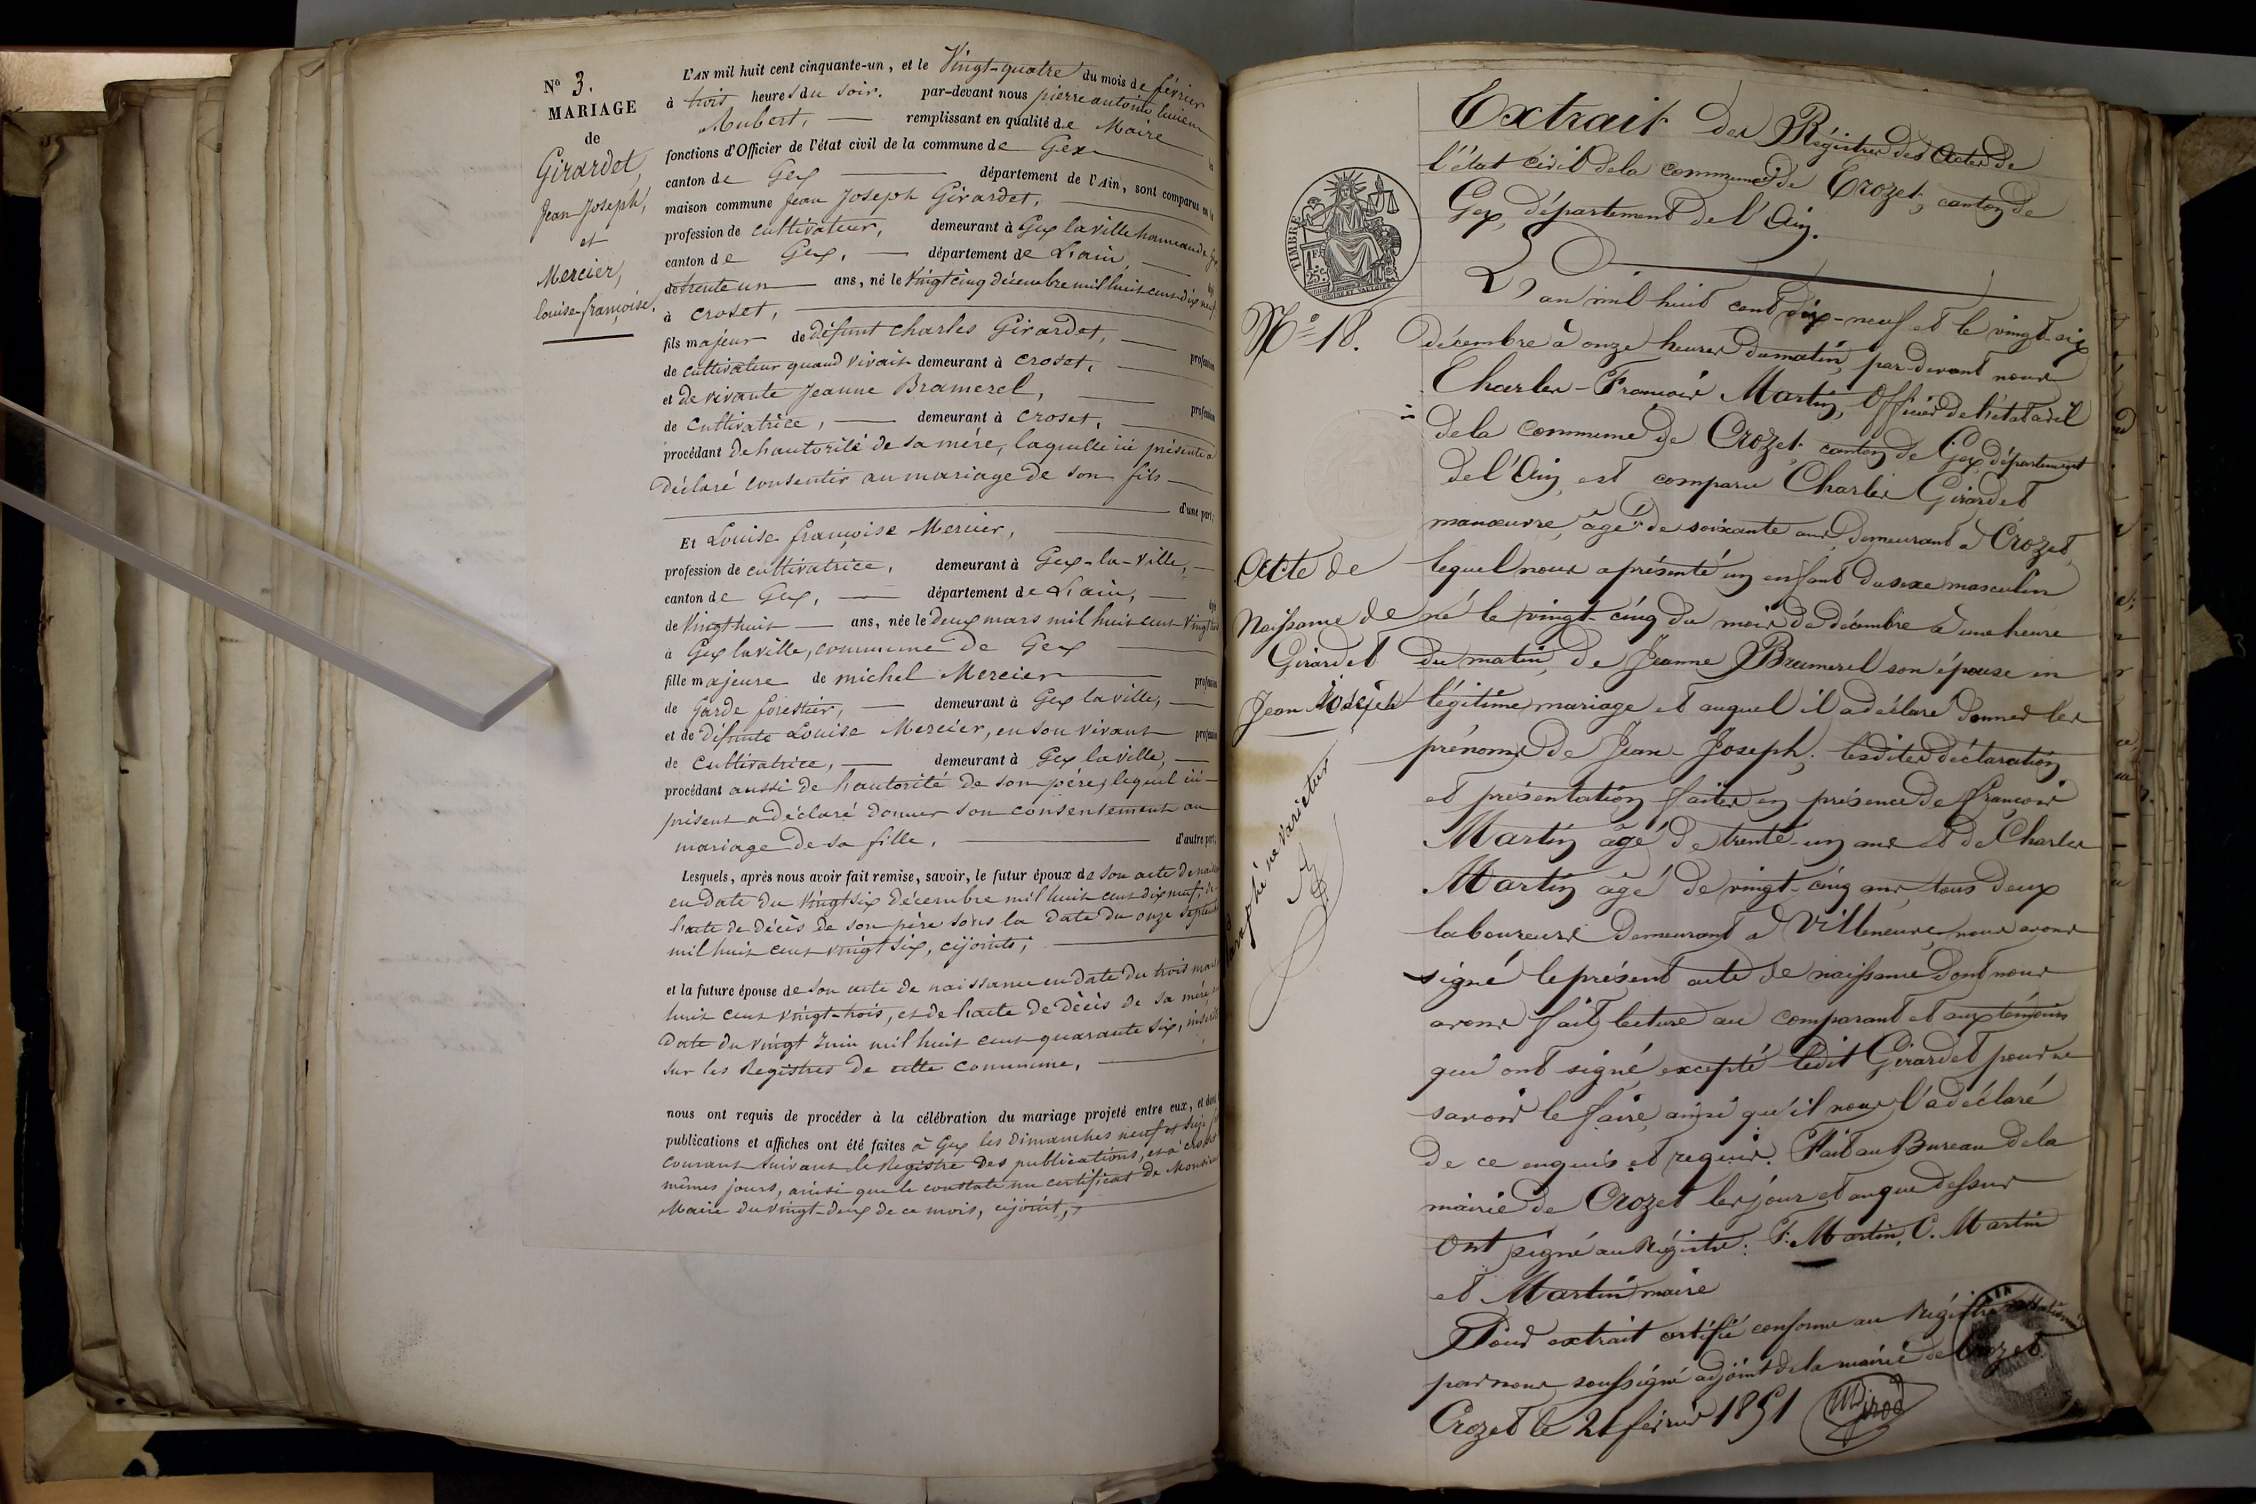 N° 3.
MARIAGE
de
Girardet,
Jean Joseph,
et
Mercier,
louise-françoise.
L'AN mil huit cent cinquante-un, et le Vingt-quatre du mois de février
à trois heures du soir. par-devant nous pierre antoine lucien
Aubert, remplissant en qualité de Maire les
fonctions d'Officier de l'état civil de la commune de Gex
canton de Gex département de l'Ain, sont comparus en la
maison commune Jean Joseph Girardet,
profession de cultivateur, demeurant à Gex la ville hameau de Gex
canton de Gex, département de L'ain,
de trente un ans, né le Vingt cinq décembre mil huit cent dix neuf
à croset,
fils majeur de défunt charles Girardet, profession
de cultivateur quand vivait demeurant à croset,
et de vivante Jeanne Bramerel, profession
de cultivatrice, demeurant à croset,
procédant de l'autorité de sa mère, laquelle ici présente a
déclaré consentir au mariage de son fils
d'une part;
Et Louise françoise Mercier,
profession de cultivatrice, demeurant à Gex-la-Ville,
canton de Gex, département de L'ain,
de Vingt huit ans, née le deux mars mil huit cent Vingt trois
à Gex la ville, commune de Gex
fille majeure de michel Mercier profession
de Garde forestier, demeurant à Gex la ville,
et de défunte Louise Mercier, en son vivant profession
de cultivatrice, demeurant à Gex la ville,
procédant aussi de l'autorité de son père, lequel ici
présent a déclaré donner son consentement au
mariage de sa fille, d'autre part;
Lesquels, après nous avoir fait remise, savoir, le futur époux de son acte de naissance
en date du Vingt six décembre mil huit cent dix neuf, de
l'acte de décès de son père sous la date du onze septembre
mil huit cent vingt six, cijoints;
et la future épouse de son acte de naissance en date du trois mars
huit cent vingt-trois, et de l'acte de décès de sa mère, en
date du vingt Juin mil huit cent quarante six, inscrits
sur les Registres de cette commune,
nous ont requis de procéder à la célébration du mariage projeté entre eux, et dont
publications et affiches ont été faites à Gex les Dimanches neuf et seize
courant suivant le Registre des publications, et à croset
mêmes jours, ainsi que le constate un certificat de Monsieur
Maire du vingt-deux de ce mois, cijoint,
Extrait des Régistres des Actes de
l'état civil de la commune de Crozet, canton de
Gex, département de l'Ain.
TIMBRE
1F
25c
N° 18.
Acte de
Naissance de
Girardet
Jean Joseph
Paraphé ne varietur
L'an mil huit cent dix-neuf et le vingt-six
décembre à onze heures du matin, par-devant nous
Charles-François Martin, Officier de l'état civil
de la commune de Crozet canton de Gex département
de l'Ain, est comparu Charles Girardet
manœuvre, âgé de soixante ans, demeurant à Crozet,
lequel nous a présenté un enfant du sexe masculin
né le vingt-cinq du mois de décembre à une heure
du matin, de Jeanne Brumerel son épouse en
légitime mariage et auquel il a déclaré donner les
prénoms de Jean-Joseph, lesdites déclaration
et présentation faites en présence de françois
Martin âgé de trente-un ans et de Charles
Martin âgé de vingt-cinq ans, tous deux
laboureurs demeurant à Villeneuve, nous avons
signé le présent acte de naissance dont nous
avons fait lecture au comparant et aux témoins
qui ont signé, excepté ledit Girardet pour ne
savoir le faire, ainsi qu'il nous l'a déclaré
de ce enquis et requis. Fait au Bureau de la
mairie de Crozet les jour et an que dessus
Ont signé au Régistre: F. Martin, C. Martin
et Martin maire
Pour extrait certifié conforme au Régistre
par nous soussigné adjoint de la mairie de Crozet
Crozet le 21 février 1851 Girod